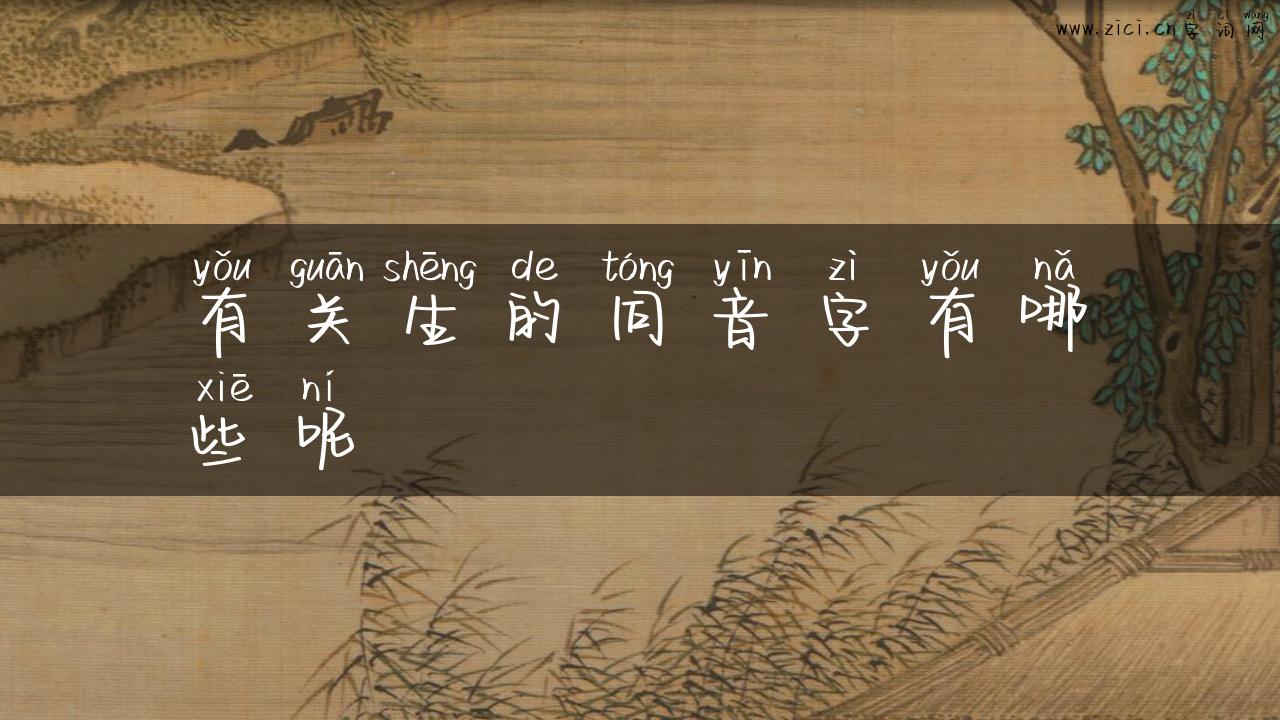 zì cí wǎng
www.zici.cn字词网
yǒu guān shēng de tóng yīn zì yǒu nǎ
有关生的同音字有哪
xiē ní
些呢